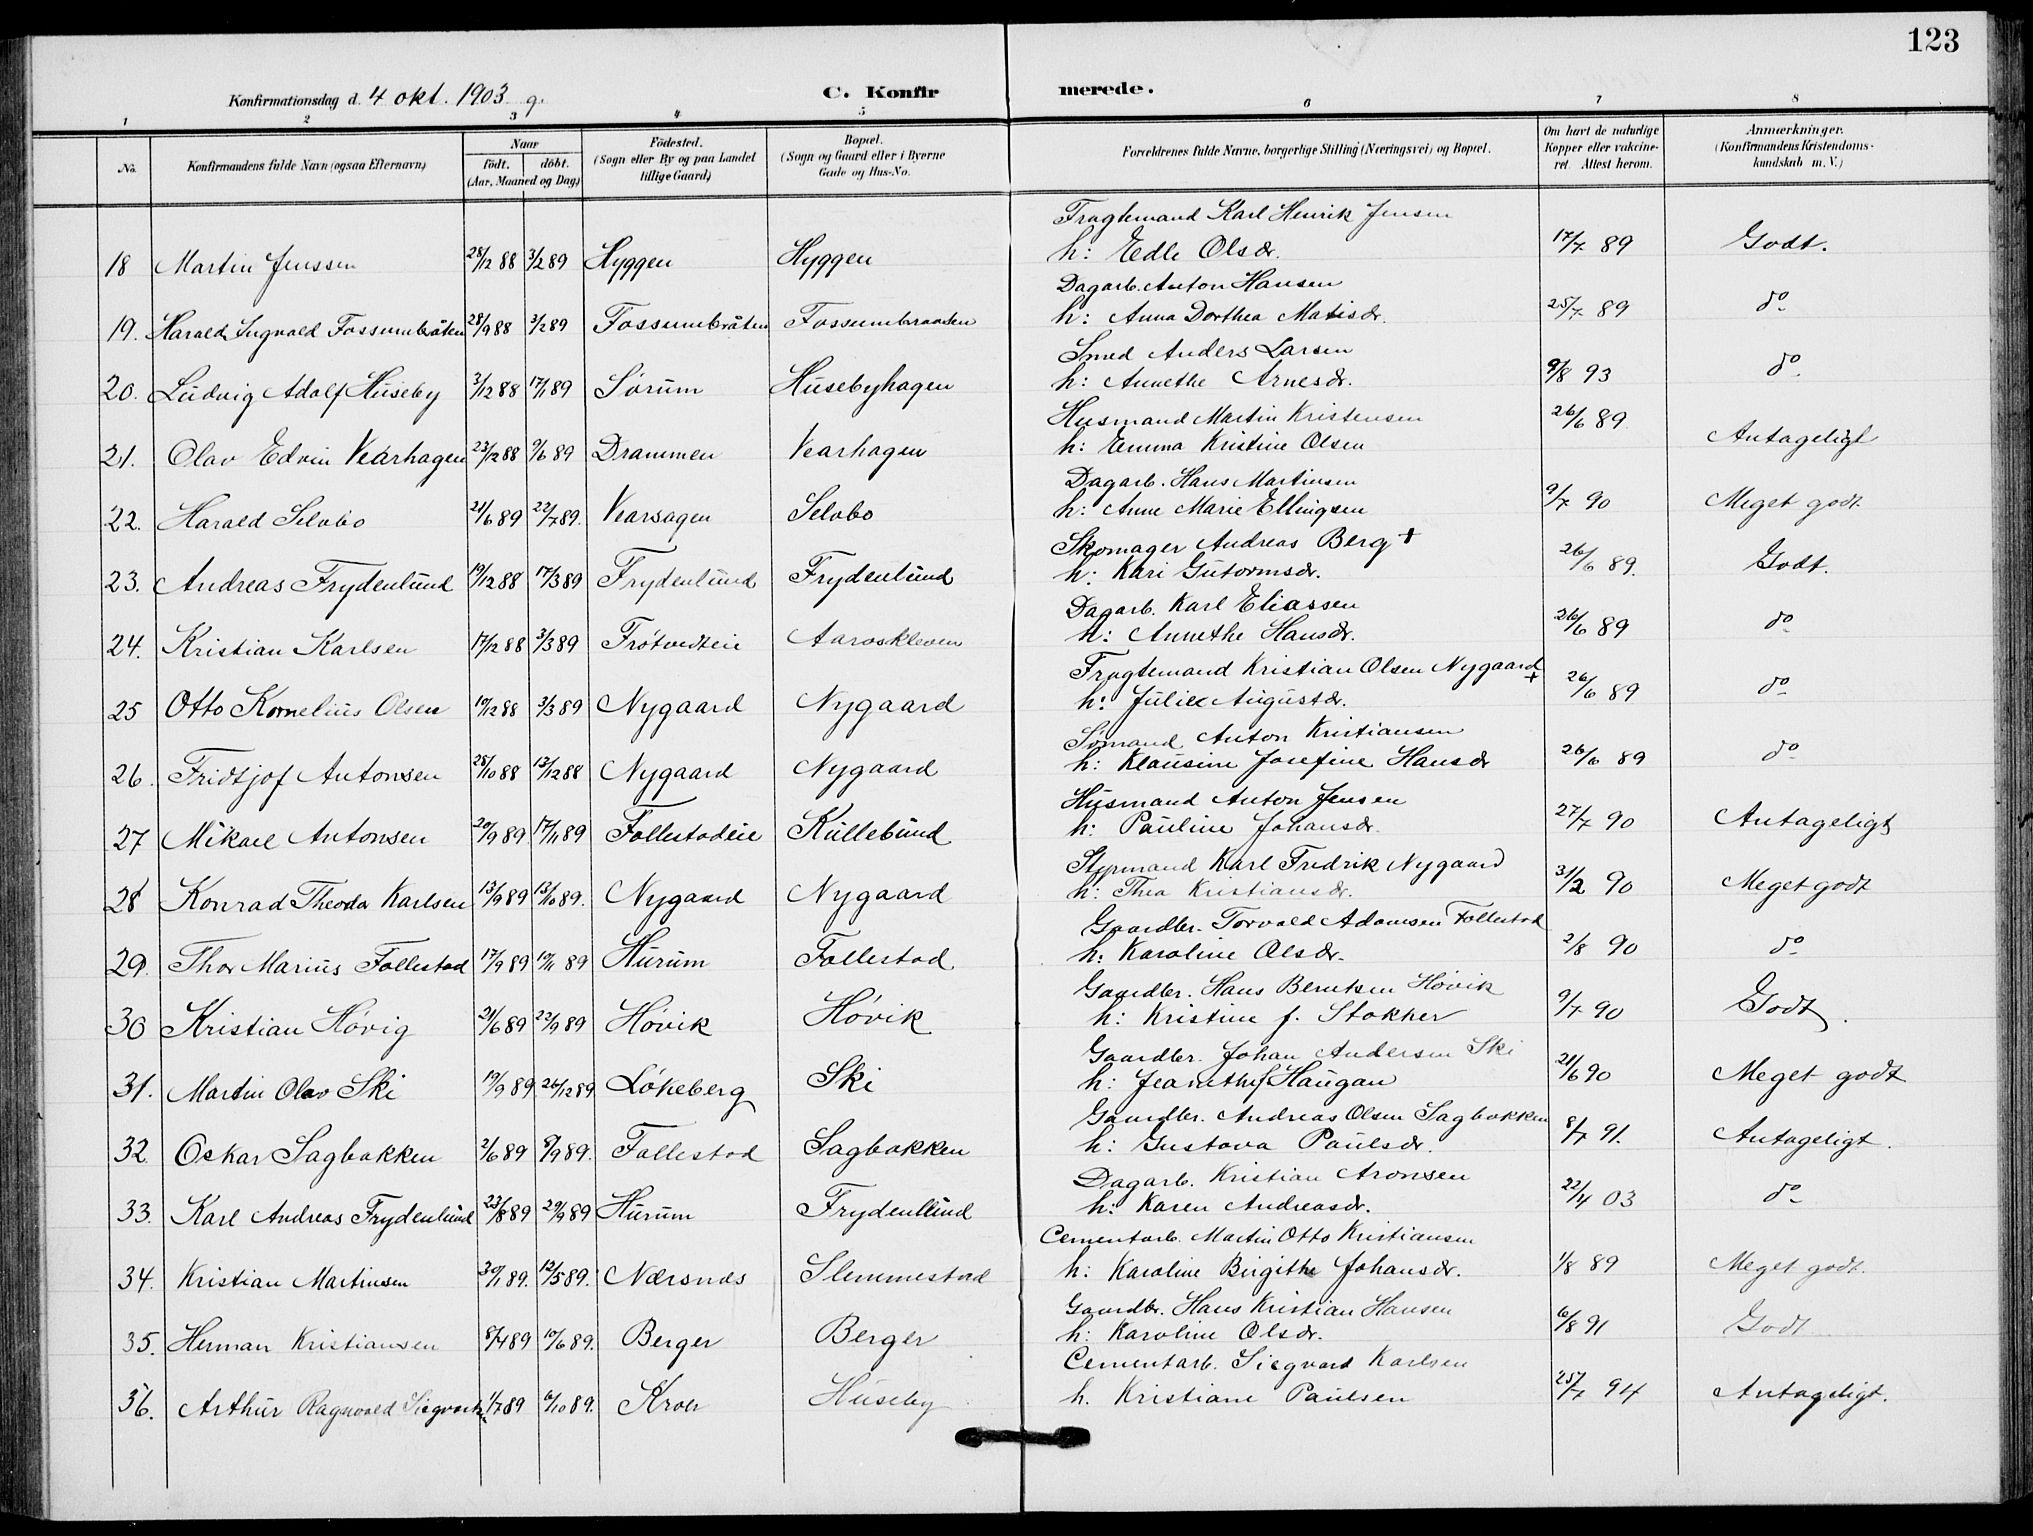 123
Konfirmationsdag d. 4 okt. 1903 g.
C. Konfirmerede.
1 2 3 4 5 6 7 8
No. Konfirmandens fulde Navn (ogsaa Efternavn) Naar födt. döbt. (Aar, Maaned og Dag) Födested. (Sogn eller By og paa Landet tillige Gaard) Bopæl. (Sogn og Gaard eller i Byerne Gade og Hus-No. Forældrenes fulde Navne, borgerlige Stilling (Næringsvei) og Bopæl. Om havt de naturlige Kopper eller vakcineret. Attest herom. Anmærkninger. (Konfirmandens Kristendomskundskab m. V.)
Fragtemand Karl Henrik Jensen
18 Martin Jenssen 28/12 88 3/2 89 Hyggen Hyggen h: Edle Olsdr. 17/7 89 Godt.
Dagarb. Anton Hansen
19. Harald Ingvald Fossumbråten 28/9 88 3/2 89 Fossumbråten Fossumbraaten h: Anna Dorthea Matisdr. 25/7 89 do
Smed Anders Larsen
20. Ludvig Adolf Huseby 3/12 88 17/1 89 Sörum Husebyhagen h: Annethe Arnesdr. 9/8 93 do
Husmand Martin Kristensen
21. Olav Edvin Vearhagen 23/12 88 9/6 89 Drammen Vearhagen h: Emma Kristine Olsen 26/6 89. Antageligt
Dagarb. Hans Martinsen
22. Harald Selvbo 21/6 89 22/7 89. Vearsagen Selvbo h: Anne Marie Ellingsen 9/7 90 Meget godt.
Skomager Andreas Berg +
23. Andreas Frydenlund 19/12 88 17/3 89 Frydenlund Frydenlund h: Kari Gutormsdr. 26/6 89. Godt.
Dagarb. Karl Eliassen
24. Kristian Karlsen 17/12 88 3/3 89 Frötvedteie Aaroskleven h: Annethe Hansdr. 26/6 89 do
Fragtemand Kristian Olsen Nygaard +
25 Otto Kornelius Olsen 10/12 88 3/3 89 Nygaard Nygaard h: Julie Augustdr. 26/6 89 do
Sömand Anton Kristiansen
26. Fridtjof Antonsen 28/10 88 13/12 88 Nygaard Nygaard h: Klausine Josefine Hansdr 26/6 89 do
Husmand Anton Jensen
27 Mikael Antonsen 20/9 89 17/11 89 Follestadeie Kullebund h: Pauline Johansdr. 27/7 90 Antageligt
Styrmand Karl Fredrik Nygaard
28 Konrad Theodor Karlsen 13/9 89 13/10 89. Nygaard Nygaard h: Thea Kristiansdr. 31/2 90 Meget godt
Gaardbr. Torvald Adamsen Follestad
29. Thor Marius Follestad 17/9 89 10/11 89 Hurum Follestad h: Karoline Olsdr. 2/8 90 do
Gaardbr. Hans Berntsen Hövik
30 Kristian Hövig 21/6 89 22/9 89 Hövik Hövik h: Kristine f. Stokker 9/7 90 Godt.
Gaardbr. Johan Andersen Ski
31. Martin Olav Ski 19/9 89 26/12 89 Lökeberg Ski h: Jeanethe f Haugan 21/6 90 Meget godt
Gaardbr. Andreas Olsen Sagbakken
32. Oskar Sagbakken 2/6 89 8/9 89. Follestad Sagbakken h: Gustava Paulsdr. 8/7 91. Antageligt.
Dagarb. Kristian Aronsen
33. Karl Andreas Frydenlund 23/8 89 29/9 89 Hurum Frydenlund h: Karen Andreasdr. 22/4 03 do
Cementarb. Martin Otto Kristiansen
34. Kristian Martinsen 30/1 89. 12/5 89. Nærsnes Slemmestad h: Karoline Birgithe Johansdr. 1/8 89 Meget godt.
Gaardbr. Hans Kristian Hansen
35. Herman Kristiansen 8/4 89 10/6 89. Berger Berger h: Karoline Olsdr. 6/8 91 Godt
Cementarb. Siegvard Karlsen
36. Arthur Ragnvald 1/7 89 6/10 89. Huseby h. Kristiane Paulsen 25/7 94 Antageligt.